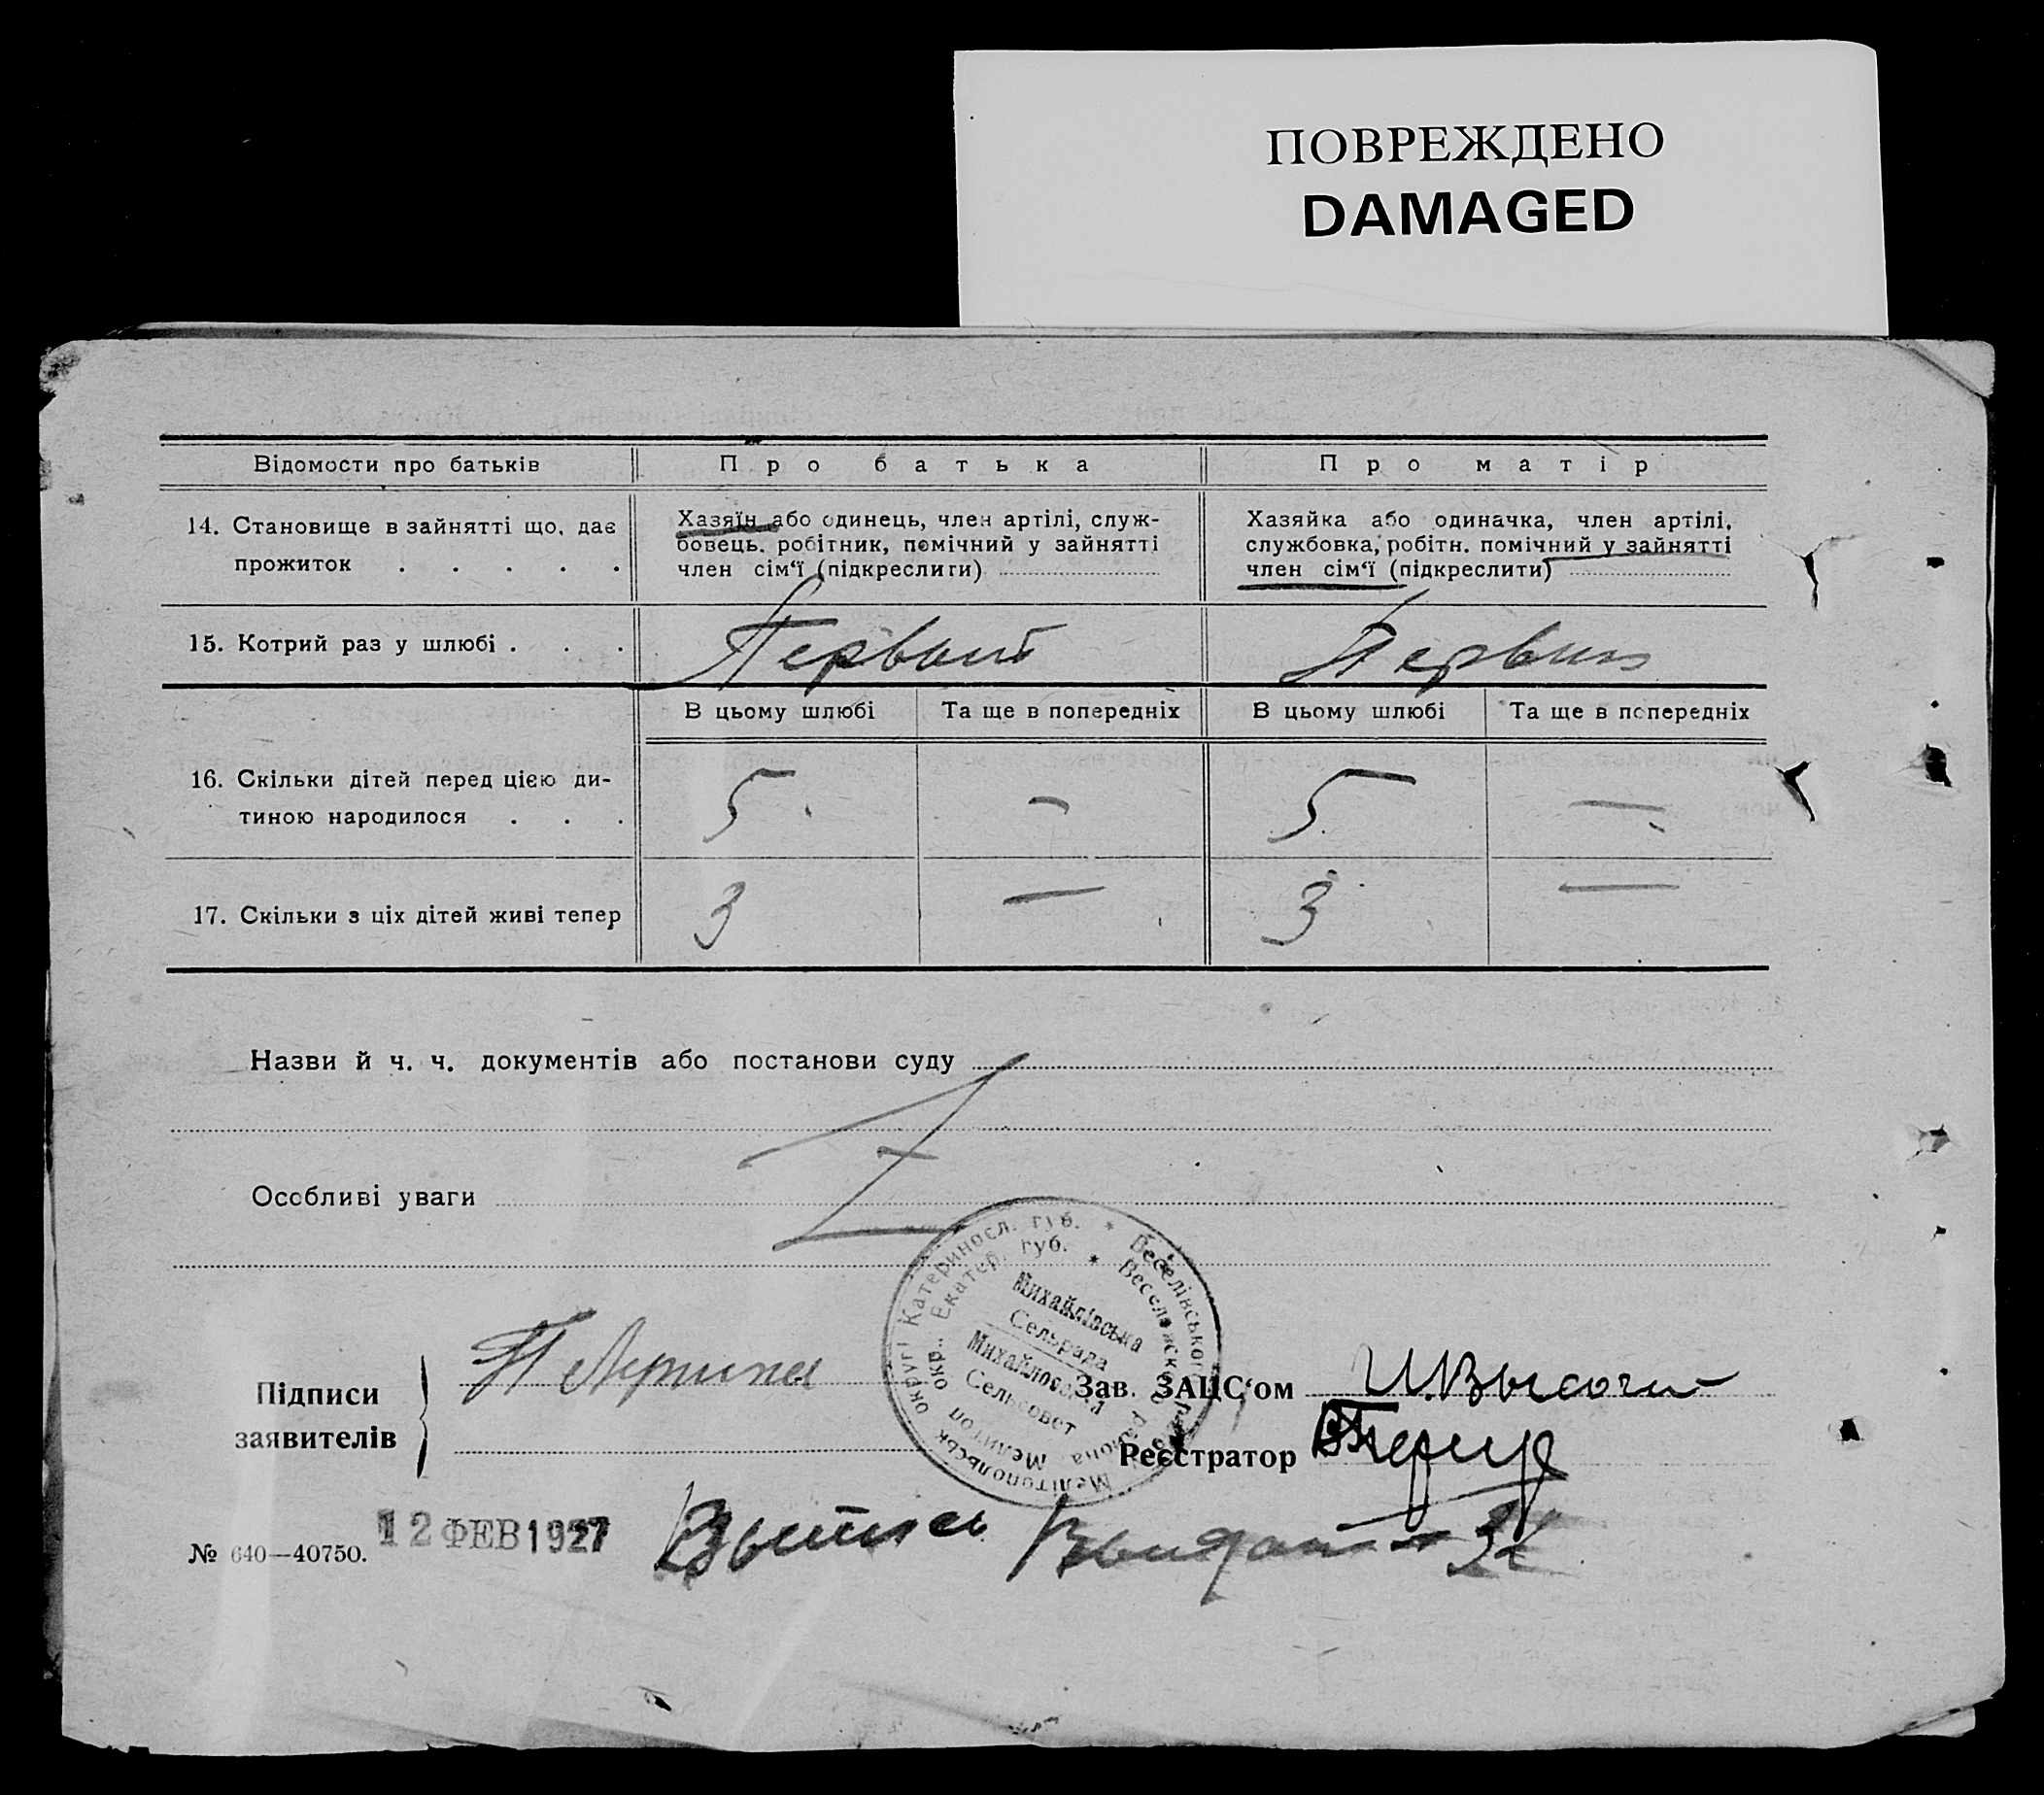 ПОВРЕЖДЕНО
DAMAGED
Відомости про батьків
Про батька
Про матір
14. Становище в зайнятті що, дає
прожиток . . . . .
Хазяїн або одинець, член артілі, служ-
бовець. робітник, помічний у зайнятті
член сім‘ї (підкреслити)
Хазяйка або одиначка, член артілі,
службовка, робітн. помічний у зайнятті
член сім‘ї (підкреслити)
15. Котрий раз у шлюбі . . .
Первый
Первый
В цьому шлюбі
Та ще в попередніх
В цьому шлюбі
Та ще в попередніх
16. Скільки дітей перед цією ди-
тиною народилося . . .
5
—
5
—
17. Скільки з ціх дітей живі тепер
3
—
3
—
Назви й ч. ч. документів або постанови суду
Особливі уваги
Мелітопольськ. округі Катериносл. губ. * Веселівського району
Мелитоп. окр. Екатер. губ. * Веселовского района
Михайлівська
Сельрада
Михайловский
Сельсовет
Підписи
заявителів
Зав. ЗАЦС‘ом
Реєстратор
№ 640—40750.
12 ФЕВ 1927
Выпись